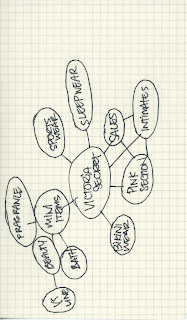 SLEEPWEAR
SPORTS
WEAR
SALES
INTIMATES
VICTORIA
SECRET
PINK
SECTION
BIKINI
WEAR
MINI
ITEMS
FRAGRANCE
BEAUTY
BATH
VS
LINE